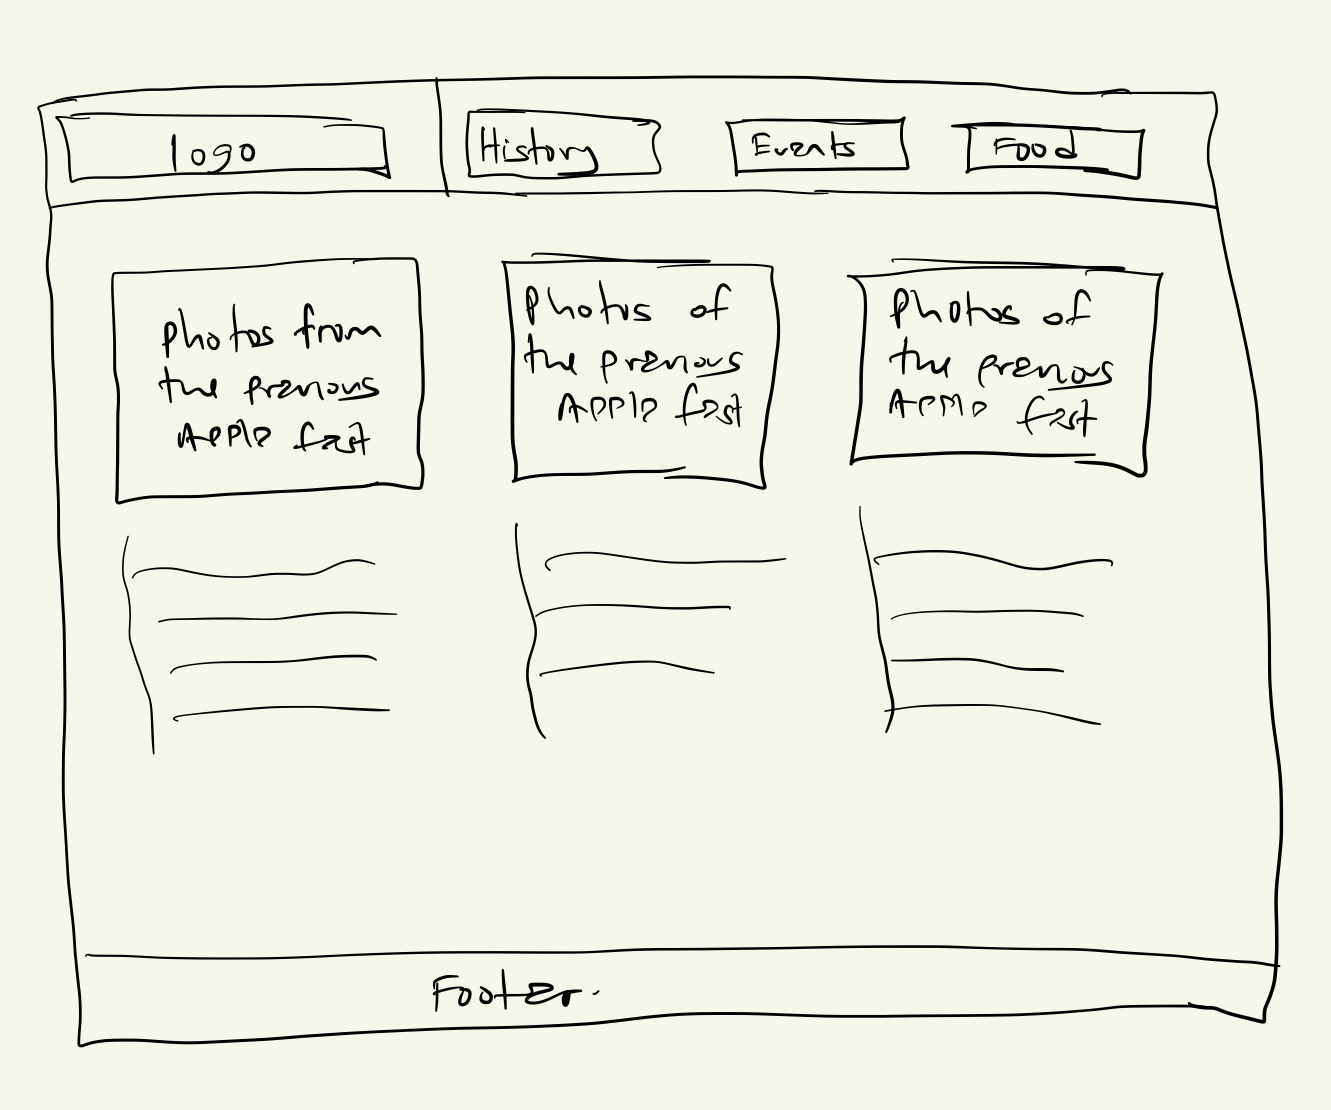 logo
History
Events
Food
photos from
the previous
Apple fest
Photos of
the previous
Apple fest
Photos of
the previous
Apple fest
Footer.